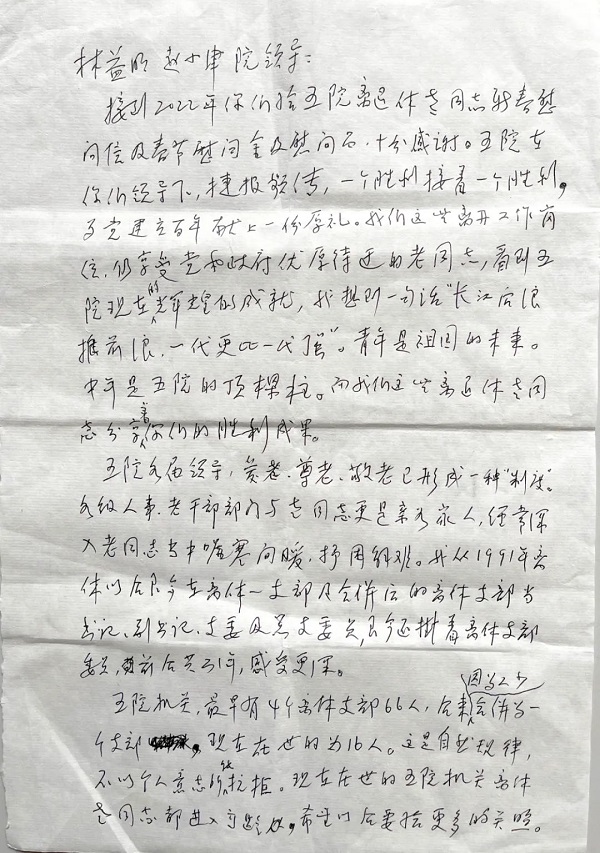 林益明 赵小津 院领导:
接到2022年你们给五院离退休老同志新春慰
问信及春节慰问金及慰问品,十分感谢。五院在
你们领导下,捷报频传,一个胜利接着一个胜利,
为党建立百年献上一份厚礼。我们这些离开工作岗
位,仍享受党和政府优厚待遇的老同志,看到五
院现在的光辉的成就,我想到一句话“长江后浪
推前浪,一代更比一代强”。青年是祖国的未来。
中年是五院的顶梁柱。而我们这些离退休老同
志分享着你们的胜利成果。
五院各届领导,爱老、尊老、敬老已形成一种“制度”。
各级人事、老干部部门与老同志更是亲如家人,经常深
入老同志当中嘘寒问暖,排困解难。我从1991年离
休以后只今在离休一支部及合併后的离休支部当
书记、副书记、支委及兼支委员,只今还挂着离休支部
委员,前后共31年,感受更深。
五院机关,最早有4个离休支部66人,后来因为人少合併为一
个支部,现在在世的为16人。这是自然规律,
不以个人意志所能抗拒。现在在世的五院机关离休
老同志都进入高龄,希望以后要给更多的关照。